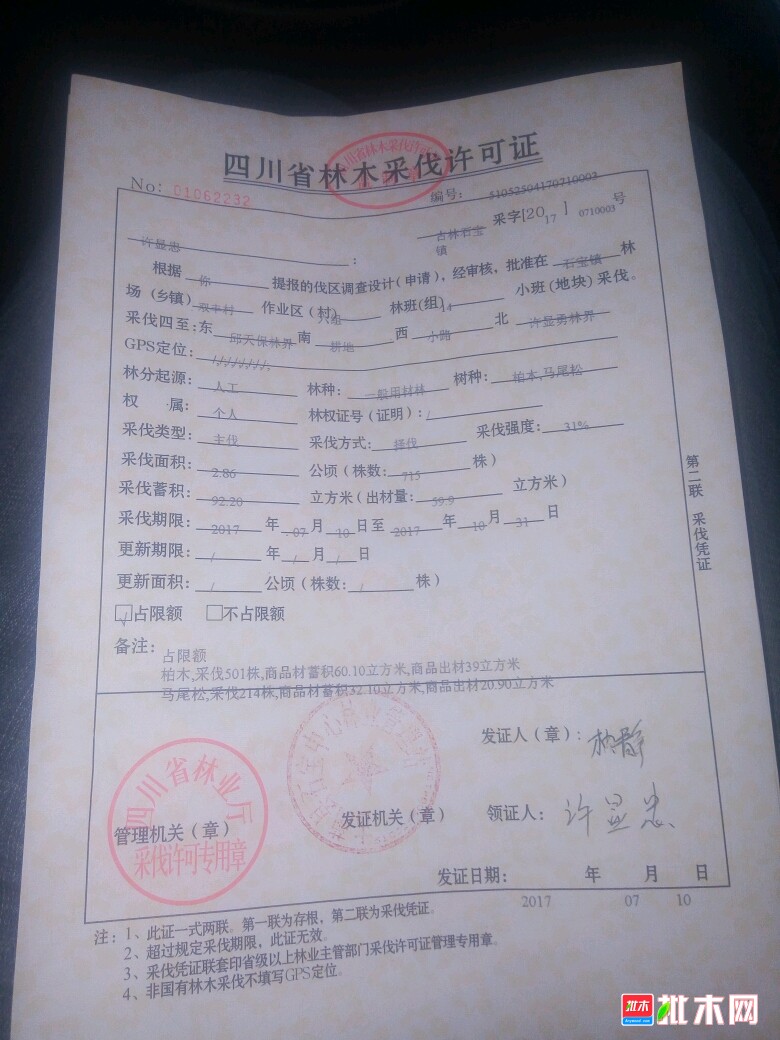 四川省林木采伐许可证
No: 01062232
编号: 51052504170710003
古林石宝镇 采字[2017] 0710003号
许显忠:
根据 你 提报的伐区调查设计(申请), 经审核, 批准在 石宝镇 林
场(乡镇) 双丰村 作业区(村) 六组 林班(组) 14 小班(地块)采伐。
采伐四至: 东 邱天保林界 南 耕地 西 小路 北 许显勇林界
GPS定位: /,/,/,/,/,/,
林分起源: 人工 林种: 一般用材林 树种: 柏木,马尾松
权 属: 个人 林权证号(证明): /
采伐类型: 主伐 采伐方式: 择伐 采伐强度: 31%
采伐面积: 2.86 公顷(株数: 715 株)
采伐蓄积: 92.20 立方米(出材量: 59.9 立方米)
采伐期限: 2017 年 07 月 10 日至 2017 年 10 月 31 日
更新期限: / 年 / 月 / 日
更新面积: / 公顷(株数: / 株)
☑占限额 □不占限额
备注: 占限额
柏木,采伐501株,商品材蓄积60.10立方米,商品出材39立方米
马尾松,采伐214株,商品材蓄积32.10立方米,商品出材20.90立方米
第二联 采伐凭证
发证人(章):
四川省林业厅
采伐许可专用章
管理机关(章)
发证机关(章)
领证人: 许显忠
发证日期: 年 月 日
2017 07 10
注: 1、此证一式两联。第一联为存根, 第二联为采伐凭证。
2、超过规定采伐期限, 此证无效。
3、采伐凭证联套印省级以上林业主管部门采伐许可证管理专用章。
4、非国有林木采伐不填写GPS定位。
批木 批木网